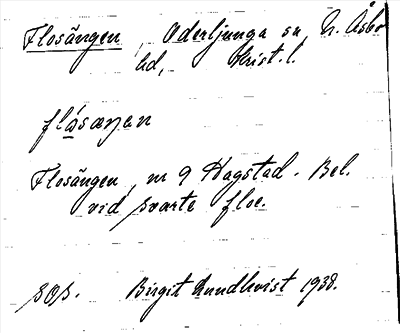 Flosängen, Oderljunga sn, N. Åsbo
hd, Krist. l.
flåsaŋen
Flosängen, nr 9 Hagstad. Bel.
vid svarte floe.
SOS. Birgit Lundkvist 1938.